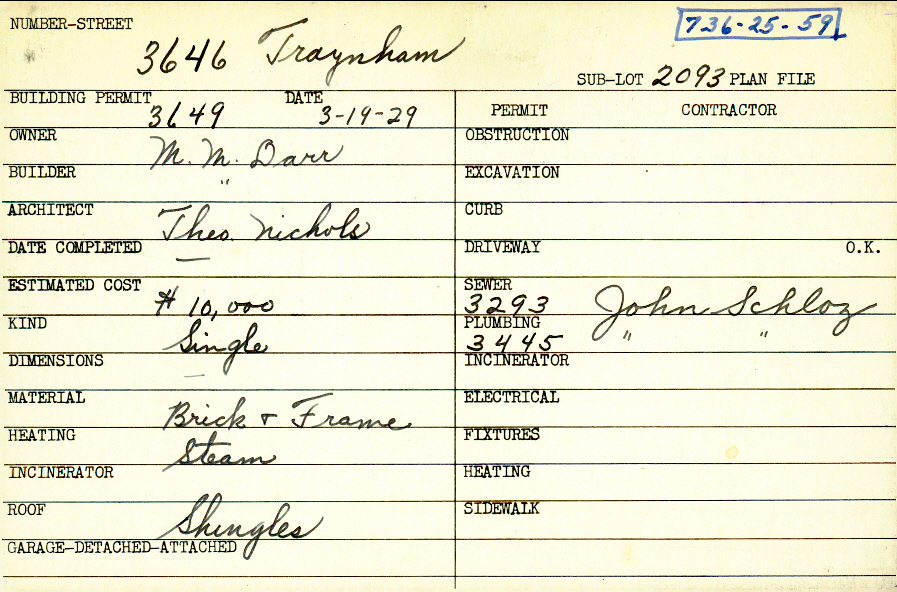 NUMBER-STREET
3646 Traynham
736-25-59
SUB-LOT 2093 PLAN FILE
BUILDING PERMIT 3649 DATE 3-19-29
OWNER M. M. Darr
BUILDER "
ARCHITECT Theo. Nichols
DATE COMPLETED —
ESTIMATED COST $ 10,000
KIND Single
DIMENSIONS —
MATERIAL Brick & Frame
HEATING Steam
INCINERATOR
ROOF Shingles
GARAGE-DETACHED-ATTACHED
PERMIT CONTRACTOR
OBSTRUCTION
EXCAVATION
CURB
DRIVEWAY O.K.
SEWER 3293 John Schloz
PLUMBING 3445 " "
INCINERATOR
ELECTRICAL
FIXTURES
HEATING
SIDEWALK